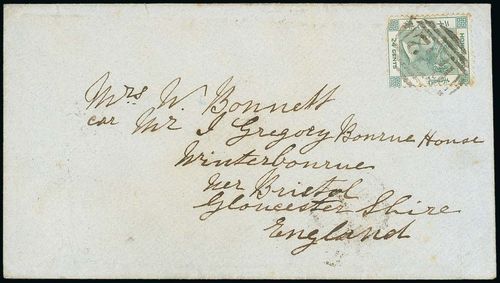 Mrs W. Bonnett
car Mr J Gregory Bourne House
Winterbourne
Ner Bristol
Gloucester Shire
England
24 CENTS
HONG